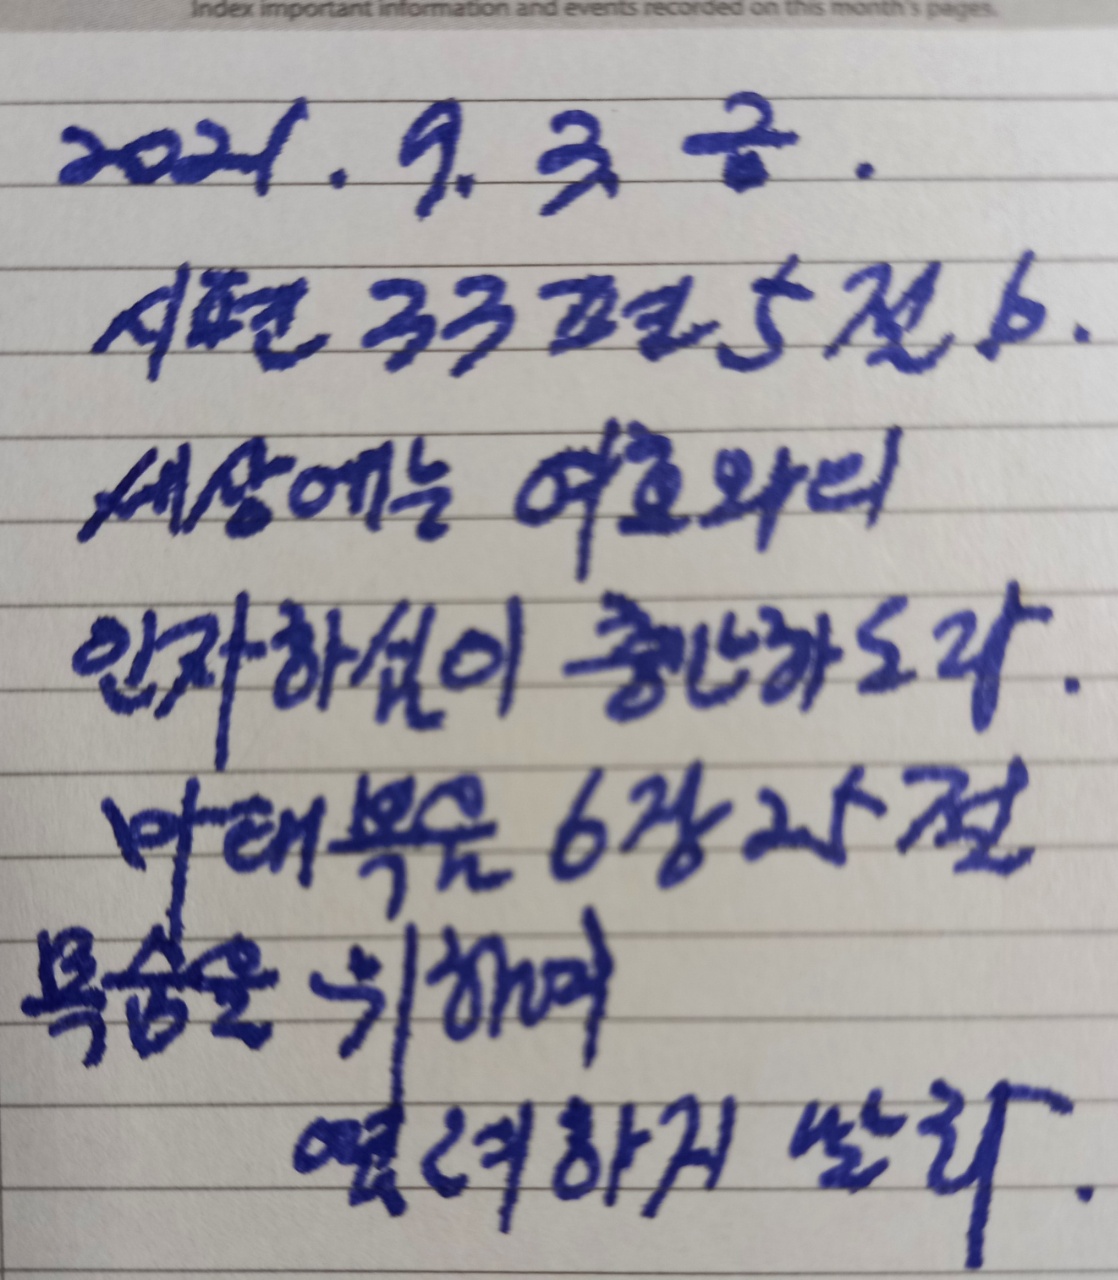 Index important information and events recorded on this month's pages.
2021. 9. 3 금.
시편 33편 5절 6.
세상에는 여호와의
인자하심이 충만하도다.
마태복음 6장 25절
목숨을 위하여
염려하지 말라.